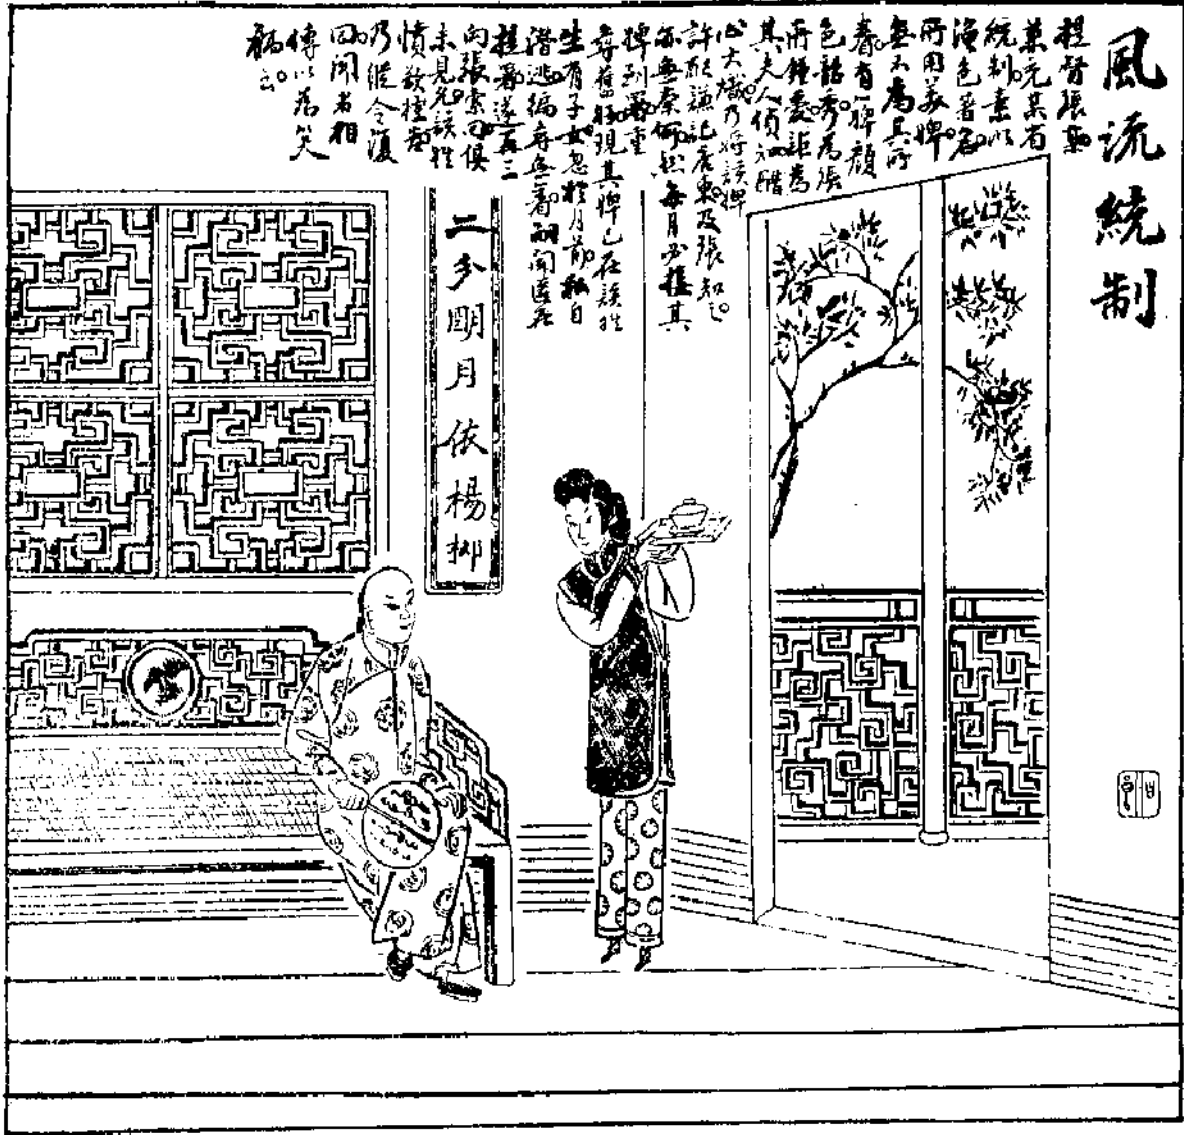 風流統制
提督張勳
兼統某省
統制素以
漁色著名
所用美婢
無不為其所
眷有一婢顏
色韶秀為張
所鍾愛詎為
其夫人偵知醋
心大熾乃將該婢
許配謙記店東及張知之
亦無奈何然每月必搖其
婢到署重
尋舊好現其婢已在該姓
生有子女忽於月前私自
潛逃編尋無著嗣聞匿在
提署遂再三
向張索回俱
未見允該姓
憤欲控告
乃經令復
回聞者相
傳以為笑
柄云
二分明月依楊柳